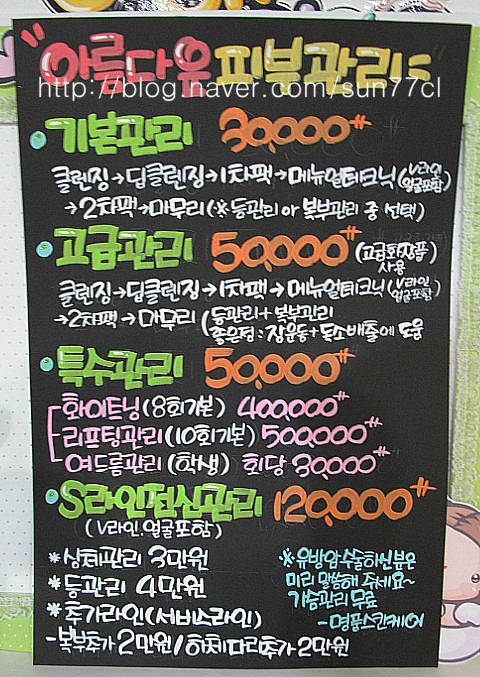 아름다운 피부관리
http://blog.naver.com/sun77cl
기본관리 30,000#
클렌징→딥클렌징→1차팩→메뉴얼테크닉(V라인 얼굴포함)
→2차팩→마무리(※등관리 or 복부관리 중 선택)
고급관리 50,000# (고급화장품 사용
클렌징→딥클렌징→1차팩→메뉴얼테크닉(V라인 얼굴포함)
→2차팩→마무리 (등관리+복부관리
좋은점:장운동+독소배출에 도움
특수관리 50,000#
화이트닝(8회기본) 400,000#
리프팅관리(10회기본) 500,000#
여드름관리(학생) 회당 30,000#
S라인전심관리 120,000#
(V라인.얼굴포함)
*상체관리 3만원
*등관리 4만원
*추가라인(서비스라인)
-복부추가2만원/하체다리추가2만원
※유방암수술하신분은
미리 말씀해 주세요~
가슴관리 무료
-명품스킨케어